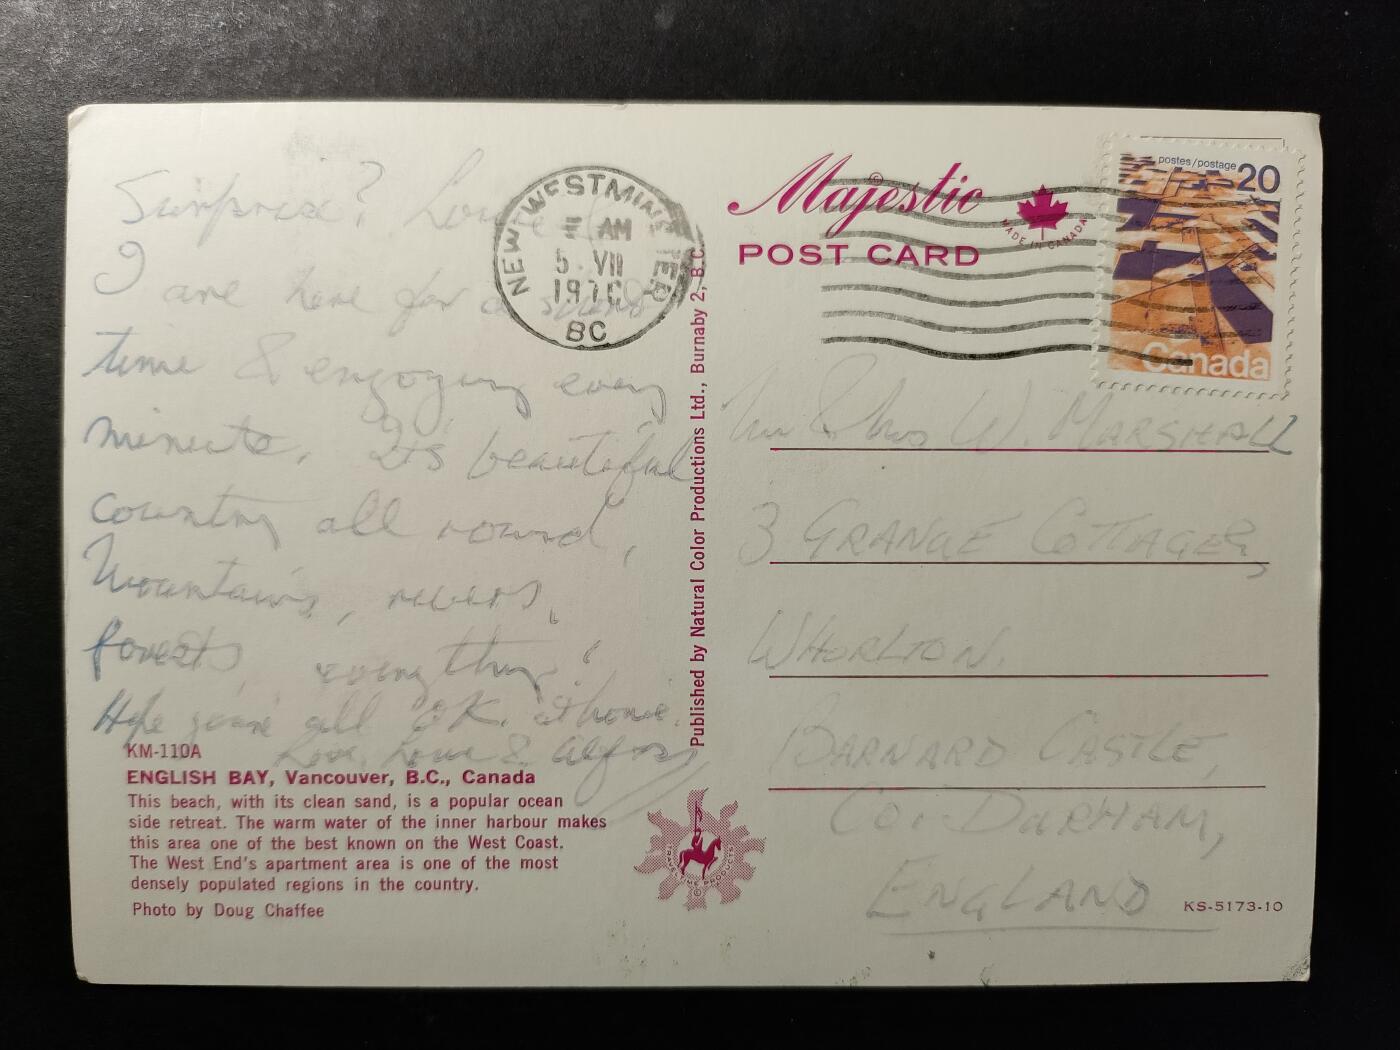 Surprise? Love
I are here for a
time & engoying every
minute. Its beautiful
country all round,
Mountains, rivers,
forests, everything!
Hope youre all OK. at home.
Love, &
NEW WESTMINSTER
AM
5 VII
BC
KM-110A
ENGLISH BAY, Vancouver, B.C., Canada
This beach, with its clean sand, is a popular ocean
side retreat. The warm water of the inner harbour makes
this area one of the best known on the West Coast.
The West End's apartment area is one of the most
densely populated regions in the country.
Photo by Doug Chaffee
Published by Natural Color Productions Ltd., Burnaby 2, B.C.
TRAVELTIME PRODUCTS
Majestic
POST CARD
MADE IN CANADA
postes/postage 20
Canada
W. MARSHALL
3 GRANGE COTTAGES,
WHORLTON.
BARNARD CASTLE,
Co. DURHAM,
ENGLAND
KS-5173-10